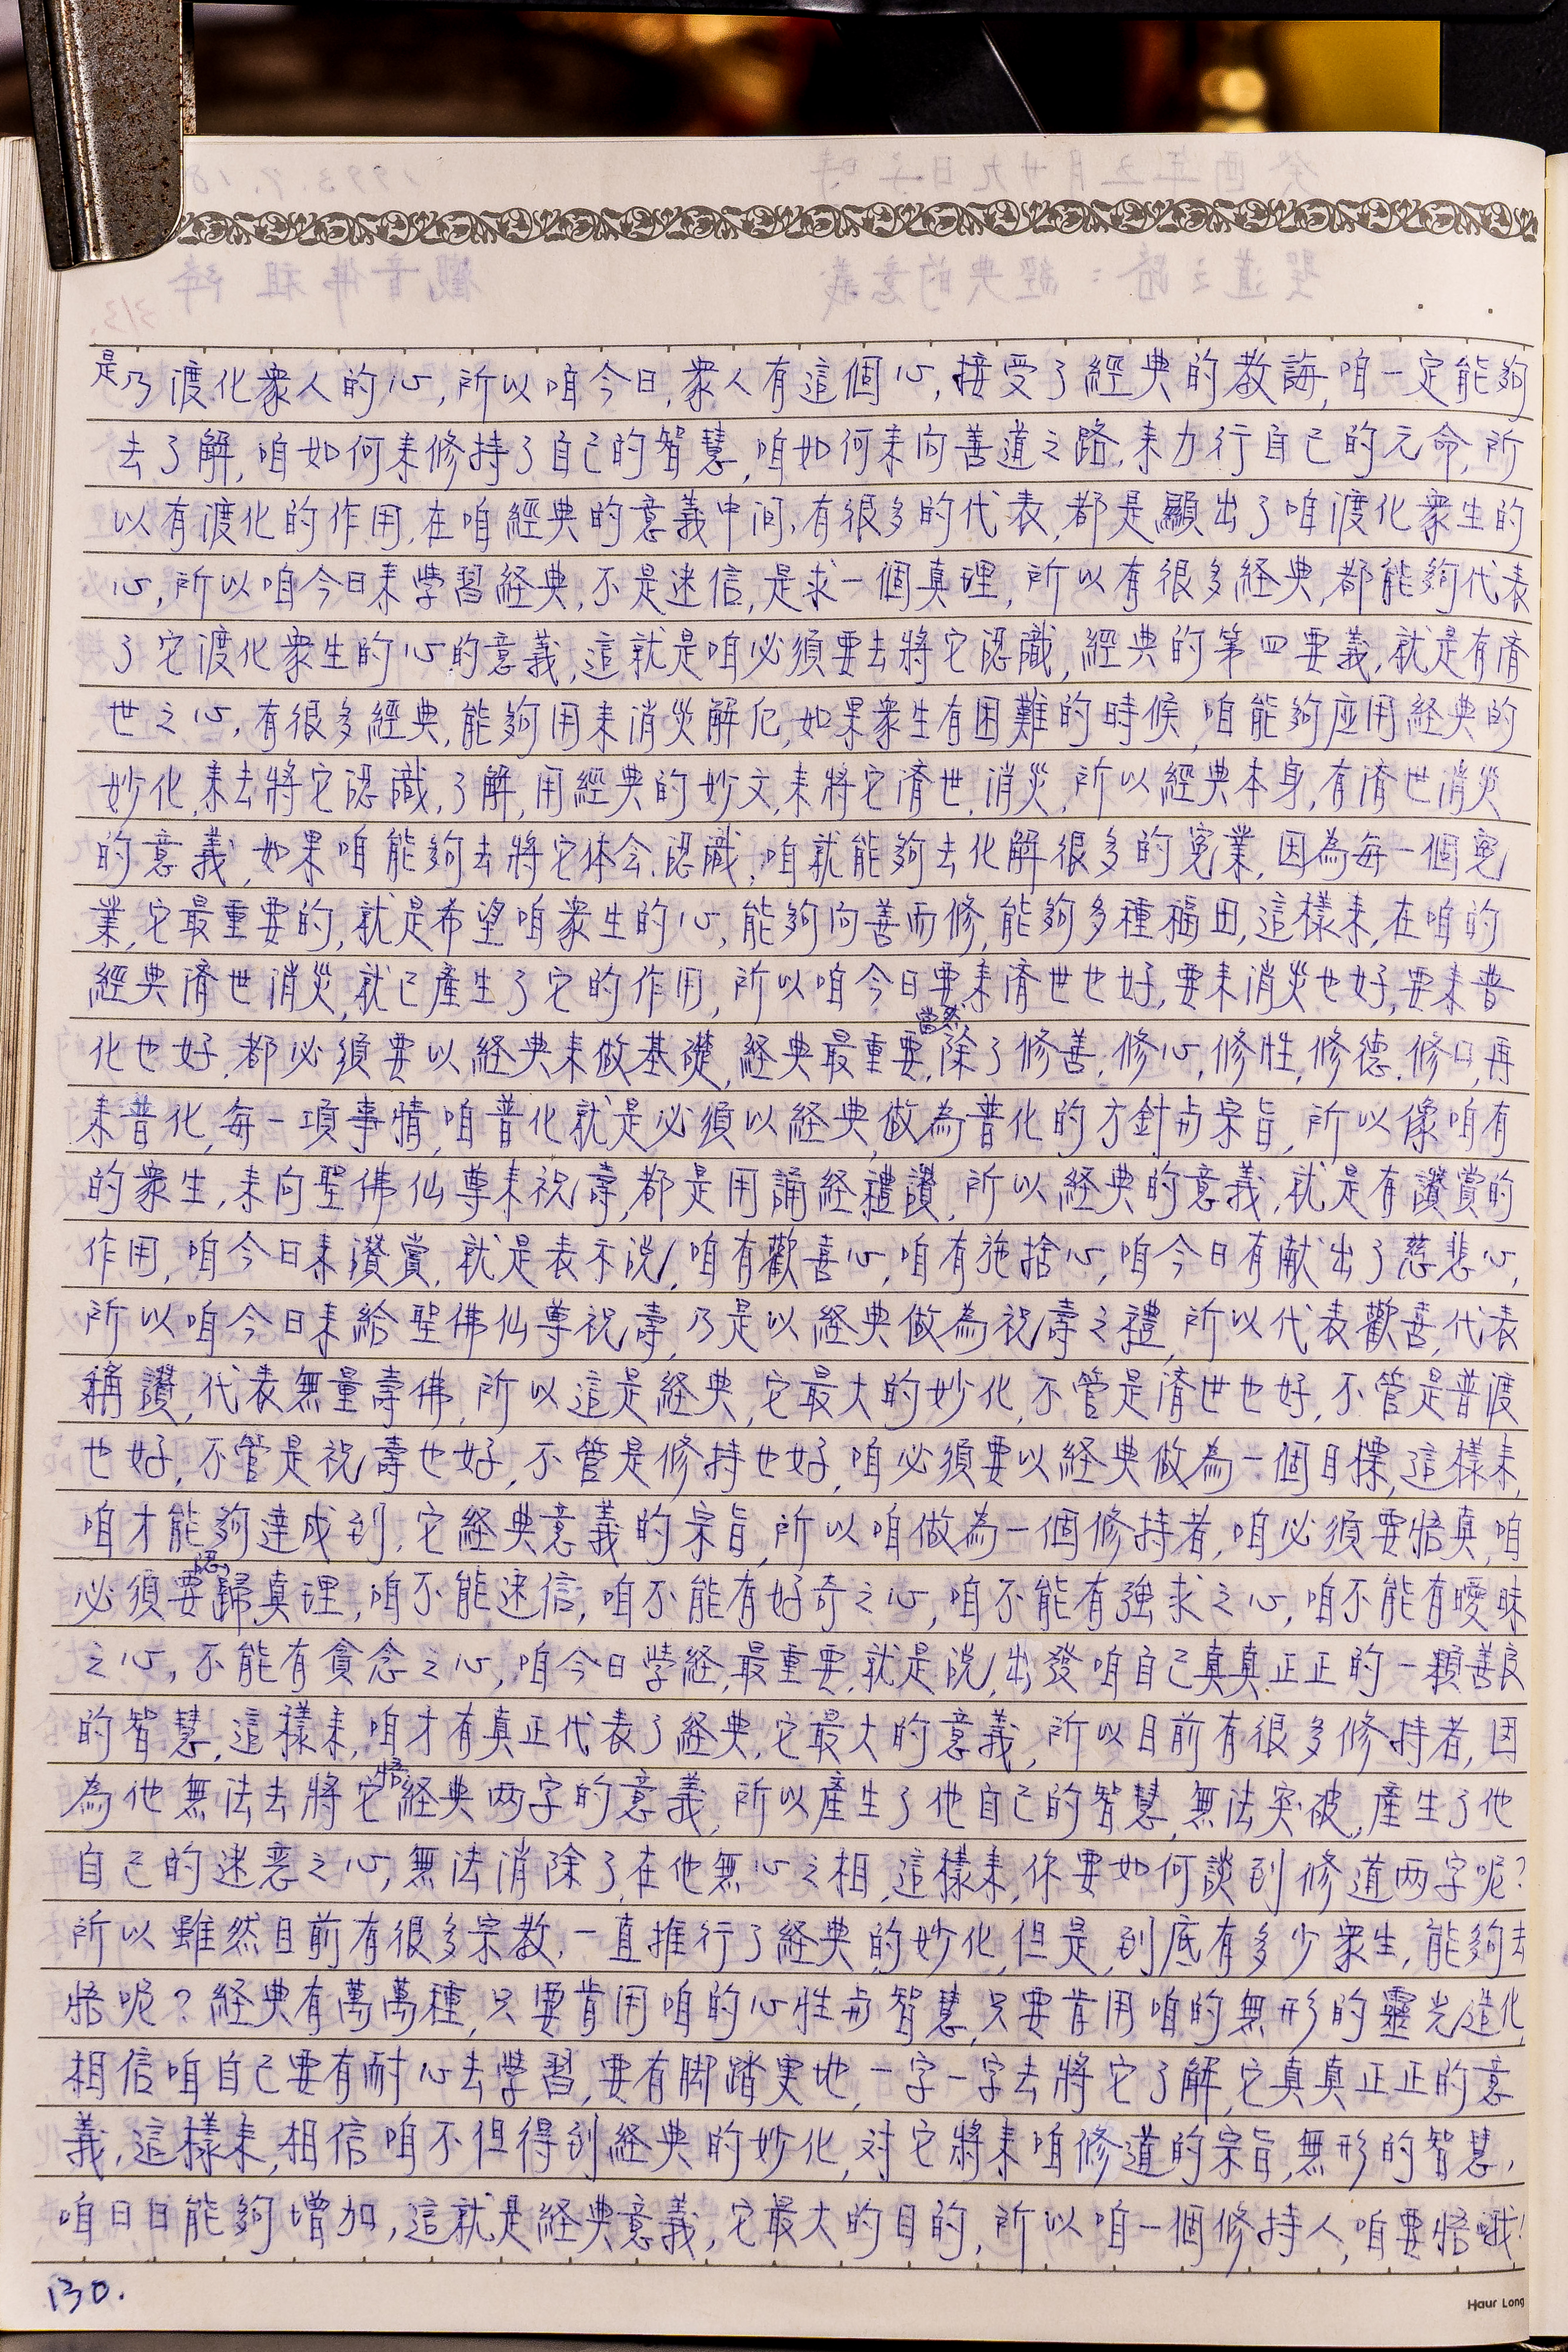 是乃渡化衆人的心,所以咱今日,衆人有這個心,接受了經典的教誨,咱一定能夠
去了解,咱如何来修持了自己的智慧,咱如何来向善道之路,来力行自己的元命,所
以有渡化的作用,在咱經典的意義中间,有很多的代表,都是顯出了咱渡化衆生的
心,所以咱今日来学習経典,不是迷信,是求一個真理,所以有很多経典,都能夠代表
了它渡化衆生的心的意義,這就是咱必須要去將它認識,經典的第四要義,就是有濟
世之心,有很多經典,能夠用来消災解厄,如果衆生有困難的時候,咱能夠应用経典的
妙化,来去將它認識,了解,用經典的妙文,来將它濟世,消災,所以經典本身,有濟世消災
的意義,如果咱能夠去將它体会,認識,咱就能夠去化解很多的冤業,因為每一個冤
業,它最重要的,就是希望咱衆生的心,能夠向善而修,能夠多種福田,這樣来,在咱的
經典濟世消災,就已產生了它的作用,所以咱今日要来濟世也好,要来消災也好,要来普
化也好,都必須要以経典来做基礎,経典最重要,當然,除了修善,修心,修性,修德,修口,再
来普化,每一項事情,咱普化就是必須以経典,做為普化的方針与宗旨,所以像咱有
的衆生,来向聖佛仙尊来祝壽,都是用誦経禮讚,所以経典的意義,就是有讚賞的
作用,咱今日来讚賞,就是表示説,咱有歡喜心,咱有施捨心,咱今日有献出了慈悲心,
所以咱今日来給聖佛仙尊祝壽,乃是以経典做為祝壽之禮,所以代表歡喜,代表
稱讚,代表無量壽佛,所以這是経典,它最大的妙化,不管是濟世也好,不管是普渡
也好,不管是祝壽也好,不管是修持也好,咱必須要以経典做為一個目標,這樣来,
咱才能夠達成到,它経典意義的宗旨,所以咱做為一個修持者,咱必須要悟真,咱
必須要認歸真理,咱不能迷信,咱不能有好奇之心,咱不能有強求之心,咱不能有曖昧
之心,不能有貪念之心,咱今日学経,最重要,就是説,出發咱自己真真正正的一顆善良
的智慧,這樣来,咱才有真正代表了経典,它最大的意義,所以目前有很多修持者,因
為他無法去將它悟経典两字的意義,所以產生了他自己的智慧,無法突破,產生了他
自己的迷惑之心,無法消除了,在他無心之相,這樣来,你要如何談到修道两字呢?
所以雖然目前有很多宗教,一直推行了経典的妙化,但是,到底有多少衆生,能夠去
悟呢?経典有萬萬種,只要肯用咱的心性与智慧,只要肯用咱的無形的靈光造化,
相信咱自己要有耐心去学習,要有脚踏実地,一字一字去將它了解,它真真正正的意
義,這樣来,相信咱不但得到経典的妙化,对它將来咱修道的宗旨,無形的智慧,
咱日日能夠增加,這就是経典意義,它最大的目的,所以咱一個修持人,咱要悟哦!
130.
Haur Long